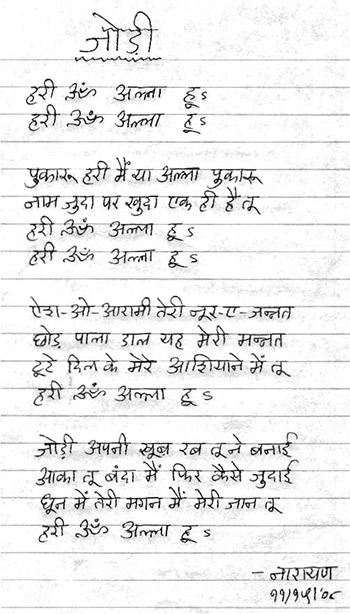 जोड़ी
हरी ॐ अल्ला हू ऽ
हरी ॐ अल्ला हू ऽ
पुकारू हरी मैं या अल्ला पुकारू
नाम जुदा पर खुदा एक ही है तू
हरी ॐ अल्ला हू ऽ
हरी ॐ अल्ला हू ऽ
ऐश-ओ-आरामी तेरी नूर-ए-जन्नत
छोड़ पाला डाल यह मेरी मन्नत
टूटे दिल के मेरे आशियाने में तू
हरी ॐ अल्ला हू ऽ
जोड़ी अपनी खूब रब तू ने बनाई
आका तू बंदा मैं फिर कैसे जुदाई
धून में तेरी मगन मैं मेरी जान तू
हरी ॐ अल्ला हू ऽ
- नारायण